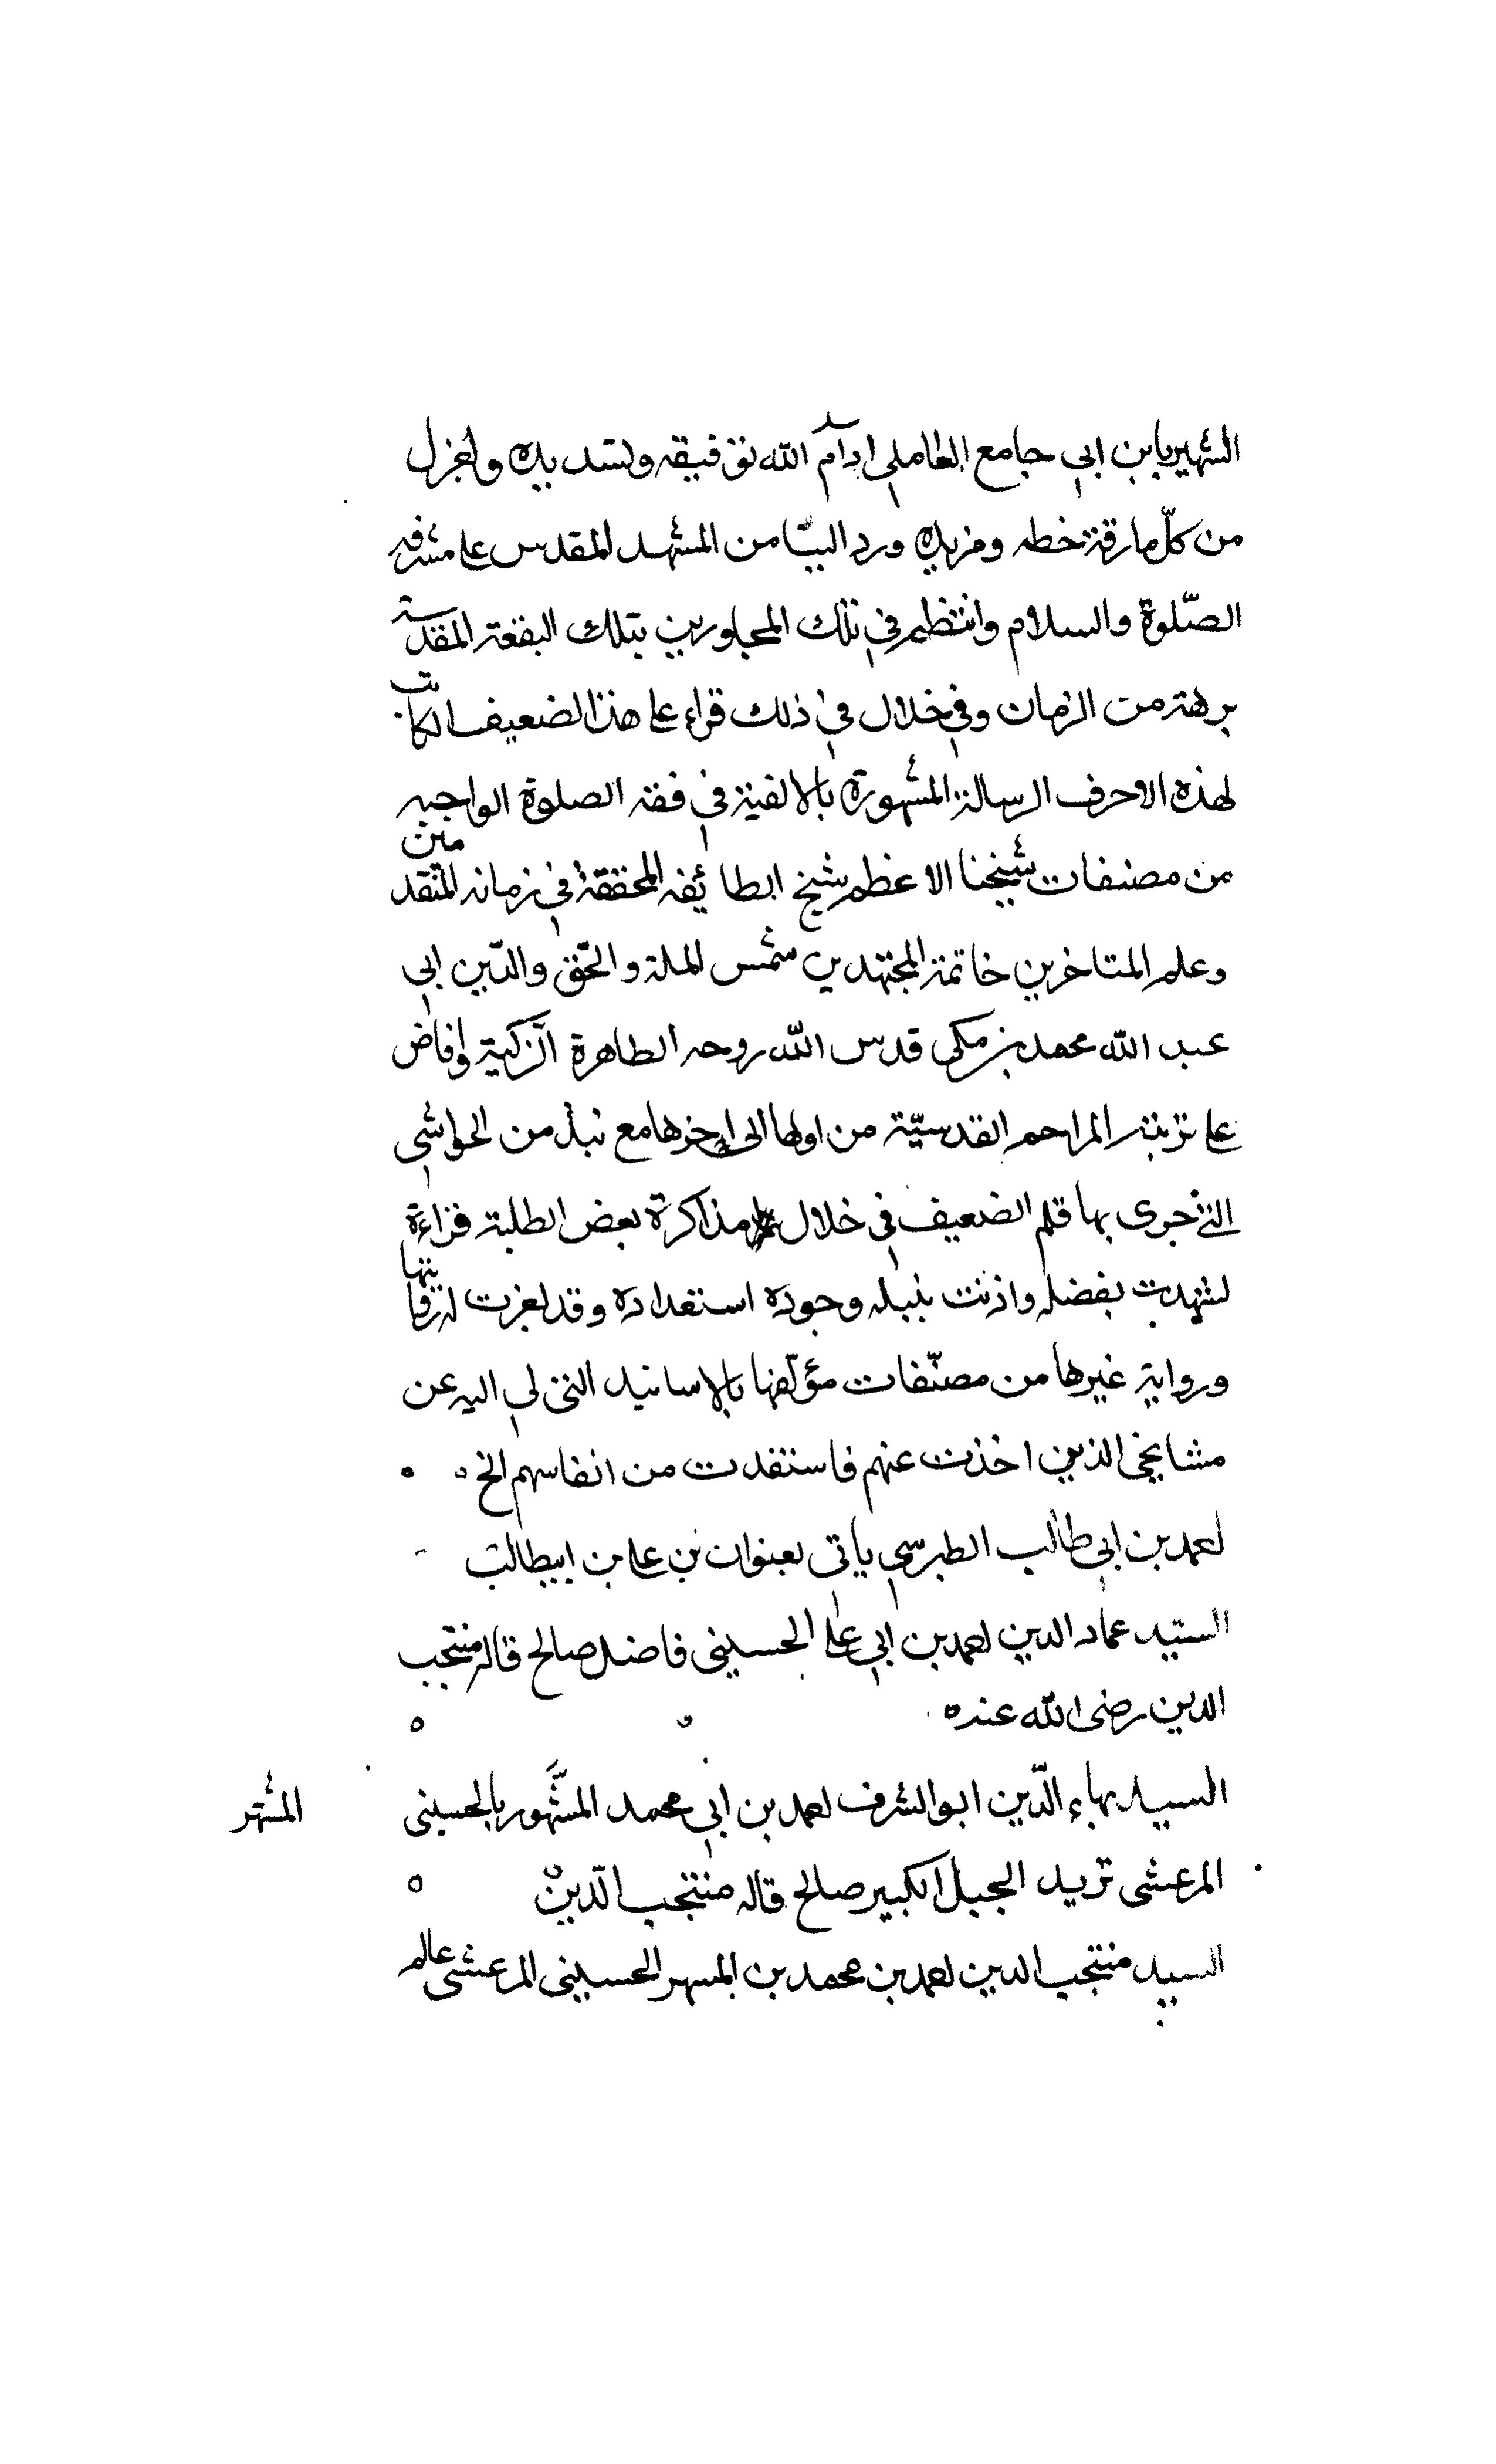 الشهير بابن ابي جامع العاملي ادام الله توفيقه وتسديده واجزل
من كلّ عارفة خطه ومزيده ورد الينا من المشهد المقدس على مشرفه
الصّلوة والسلام وانتظم في تلك المجاورين بتلك البقعة المقدسة
برهة من الزمان وفي خلال في ذلك قراء على هذا الضعيف الكاتب
لهذه الاحرف الرسالة المشهورة بالالفية في فقه الصلوة الواجبه
من مصنفات شيخنا الاعظم شيخ الطائفه المحققة في زمانه المتقدمين
وعلم المتاخرين خاتمة المجتهدين شمس الملة و الحّق والدّين ابي
عبد الله محمد بن مكي قدس الله روحه الطاهرة الزكية وافاض
على تربته المراحم القدسيّة من اولها الى اخرها مع نبذ من الحواشي
التي جرى بها قلم الضعيف في خلال مذاكرة بعض الطلبة قراءة
لشهدت بفضله واذنت بنبله وجودة استعداده وقد اجزت له روايتها
ورواية غيرها من مصنّفات مؤلفها بالاسانيد التي لي اليه عن
مشايخي الذين اخذت عنهم فاستفدت من انفاسهم الخ ٥
احمد بن ابي طالب الطبرسي ياتي بعنوان بن علي بن ابيطالب
السيّد عماد الدين احمد بن ابي علي الحسيني فاضل صالح قاله منتجب
الدين رضى الله عنه ٥ ٥
السيد بهاء الدّين ابو الشرف احمد بن ابي محمد المشّهور بالحسيني المشتهر
المرعشى تريد الجبل الكبير صالح قاله منتجب الدّين ٥
السيد منتجب الدين احمد بن محمد بن المسهر الحسيني المرعشى عالم